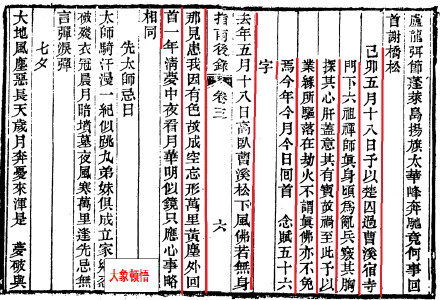 盧龍弭節蓬萊島揚旗太華峰奔馳竟何事回
首謝橋松
己卯五月十八日予以楚囚過曹溪宿寺
門下六祖禪師真身頃為亂兵窾其胸
探其心肝蓋意其有寶故禍至此予以
業緣所驅落在劫火不謂真佛亦不免
焉今年今月今日回首 念賦五十六
字
去年五月十八日高臥曹溪松下風佛若無身
指南後錄 卷三 六
那見患我因有色故成空忘形萬里黃塵外回
首一年清夢中夜看月華明似鏡只應心事略
相同
先太師忌日
太師騎汗漫一紀似跳丸弟妹俱成立家鄉
破殘衣冠晨月暗墳墓夜風寒萬里逢先忌無
言彈淚彈
七夕
大地風塵惡長天歲月奔憂來渾是 夢破與
大象顿悟